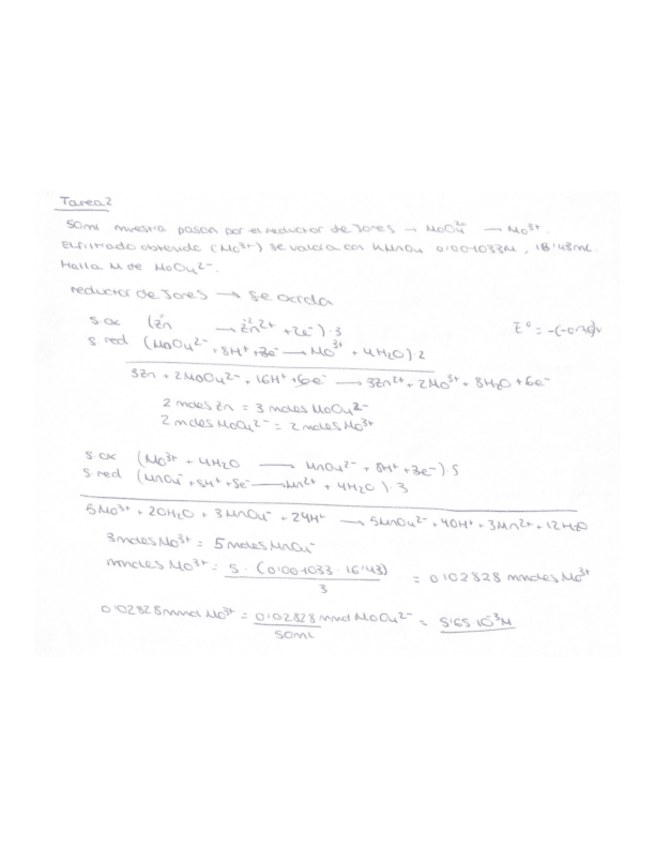 Tarea 2
50ml muestra pasan por el reductor de Jones → MoO4 2- → Mo3+.
El filtrado obtenido (Mo3+) se valora con KMnO4 0'001033M, 16'43mL.
Halla M de MoO4 2-.
reductor de Jones → se oxida
s.ox (Zn → Zn2+ + 2e-)·3 E° = -(-0'76)v
s.red (MoO4 2- + 8H+ + 3e- → Mo3+ + 4H2O)·2
3Zn + 2MoO4 2- + 16H+ + 6e- → 3Zn2+ + 2Mo3+ + 8H2O + 6e-
2 moles Zn = 3 moles MoO4 2-
2 moles MoO4 2- = 2 moles Mo3+
s.ox (Mo3+ + 4H2O → MnO4 2- + 8H+ + 3e-)·5
s.red (MnO4- + 8H+ + 5e- → Mn2+ + 4H2O)·3
5Mo3+ + 20H2O + 3MnO4- + 24H+ → 5MnO4 2- + 40H+ + 3Mn2+ + 12H2O
3 moles Mo3+ = 5 moles MnO4-
mmoles Mo3+ = 5·(0'001033·16'43) / 3 = 0'02828 mmoles Mo3+
0'02828 mmol Mo3+ = 0'02828 mmol MoO4 2- / 50mL = 5'65 10-3 M